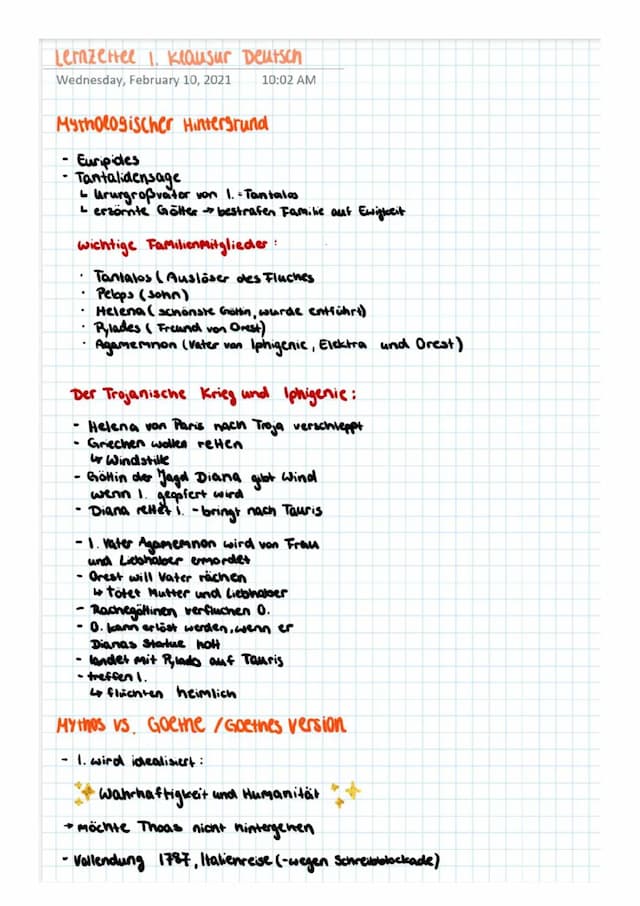 Lernzettel 1. Klausur Deutsch
Wednesday, February 10, 2021 10:02 AM
Mythologischer Hintergrund
- Euripides
- Tantalidensage
↳ Ururgroßvater von I. = Tantalos
↳ erzörnte Götter → bestrafen Familie auf Ewigkeit
wichtige Familienmitglieder :
· Tantalos ( Auslöser des Fluches
· Pelops ( Sohn )
· Helena ( schönste Göttin, wurde entführt)
· Pylades ( Freund von Orest)
· Agamemnon ( Vater von Iphigenie, Elektra und Orest )
Der Trojanische Krieg und Iphigenie :
- Helena von Paris nach Troja verschleppt
- Griechen wollen retten
↳ Windstille
- Göttin der Jagd Diana gibt Wind
wenn I. geopfert wird
- Diana rettet I. - bringt nach Tauris
- I. Vater Agamemnon wird von Frau
und Liebhaber ermordet
- Orest will Vater rächen
↳ tötet Mutter und Liebhaber
- Rachegöttinen verfluchen O.
- O. kann erlöst werden, wenn er
Dianas Statue holt
- landet mit Pylads auf Tauris
- treffen I.
↳ flüchten heimlich
Mythos vs. Goethe / Goethes Version
- I. wird idealisiert :
✨ Wahrhaftigkeit und Humanität ✨
→ möchte Thoas nicht hintergehen
- Vollendung 1787, Italienreise (-wegen Schreibblockade)